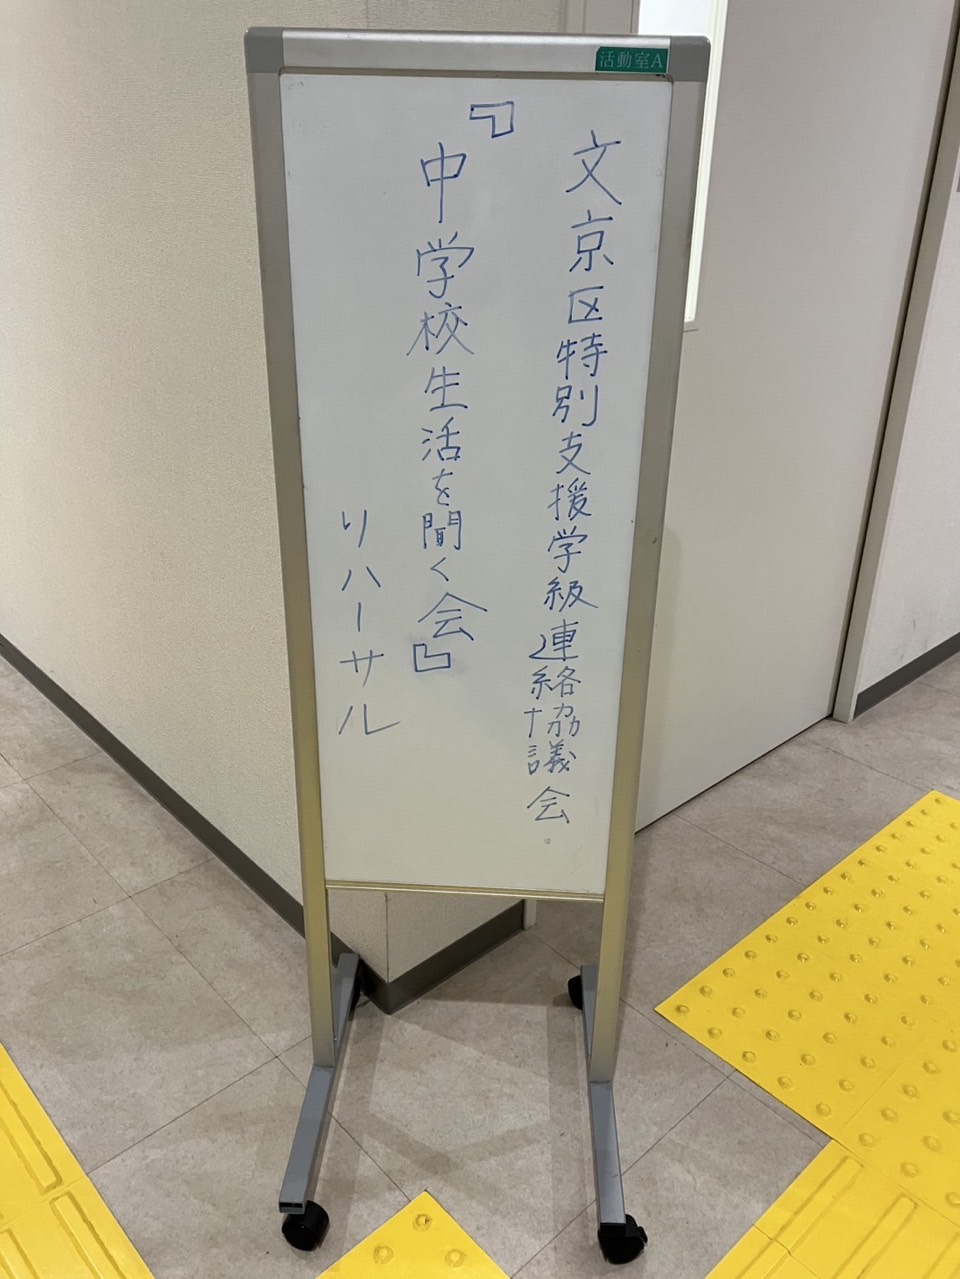 活動室A
文京区特別支援学級連絡協議会
『中学校生活を聞く会』
リハーサル